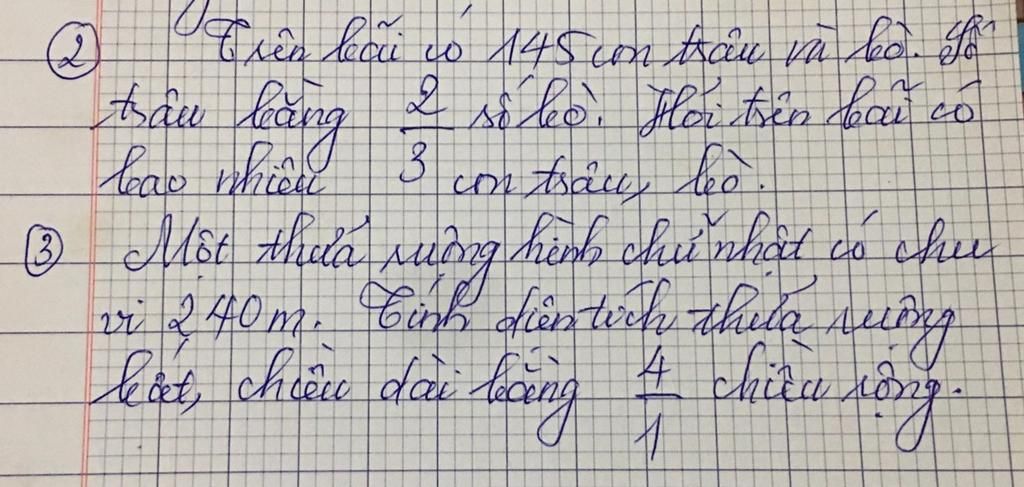 ② Trên bãi có 145 con trâu và bò. Số
trâu bằng 2/3 số bò. Hỏi trên bãi có
bao nhiêu con trâu, bò.
③ Một thửa ruộng hình chữ nhật có chu
vi 240m. Tính diện tích thửa ruộng
biết, chiều dài bằng 4/1 chiều rộng.